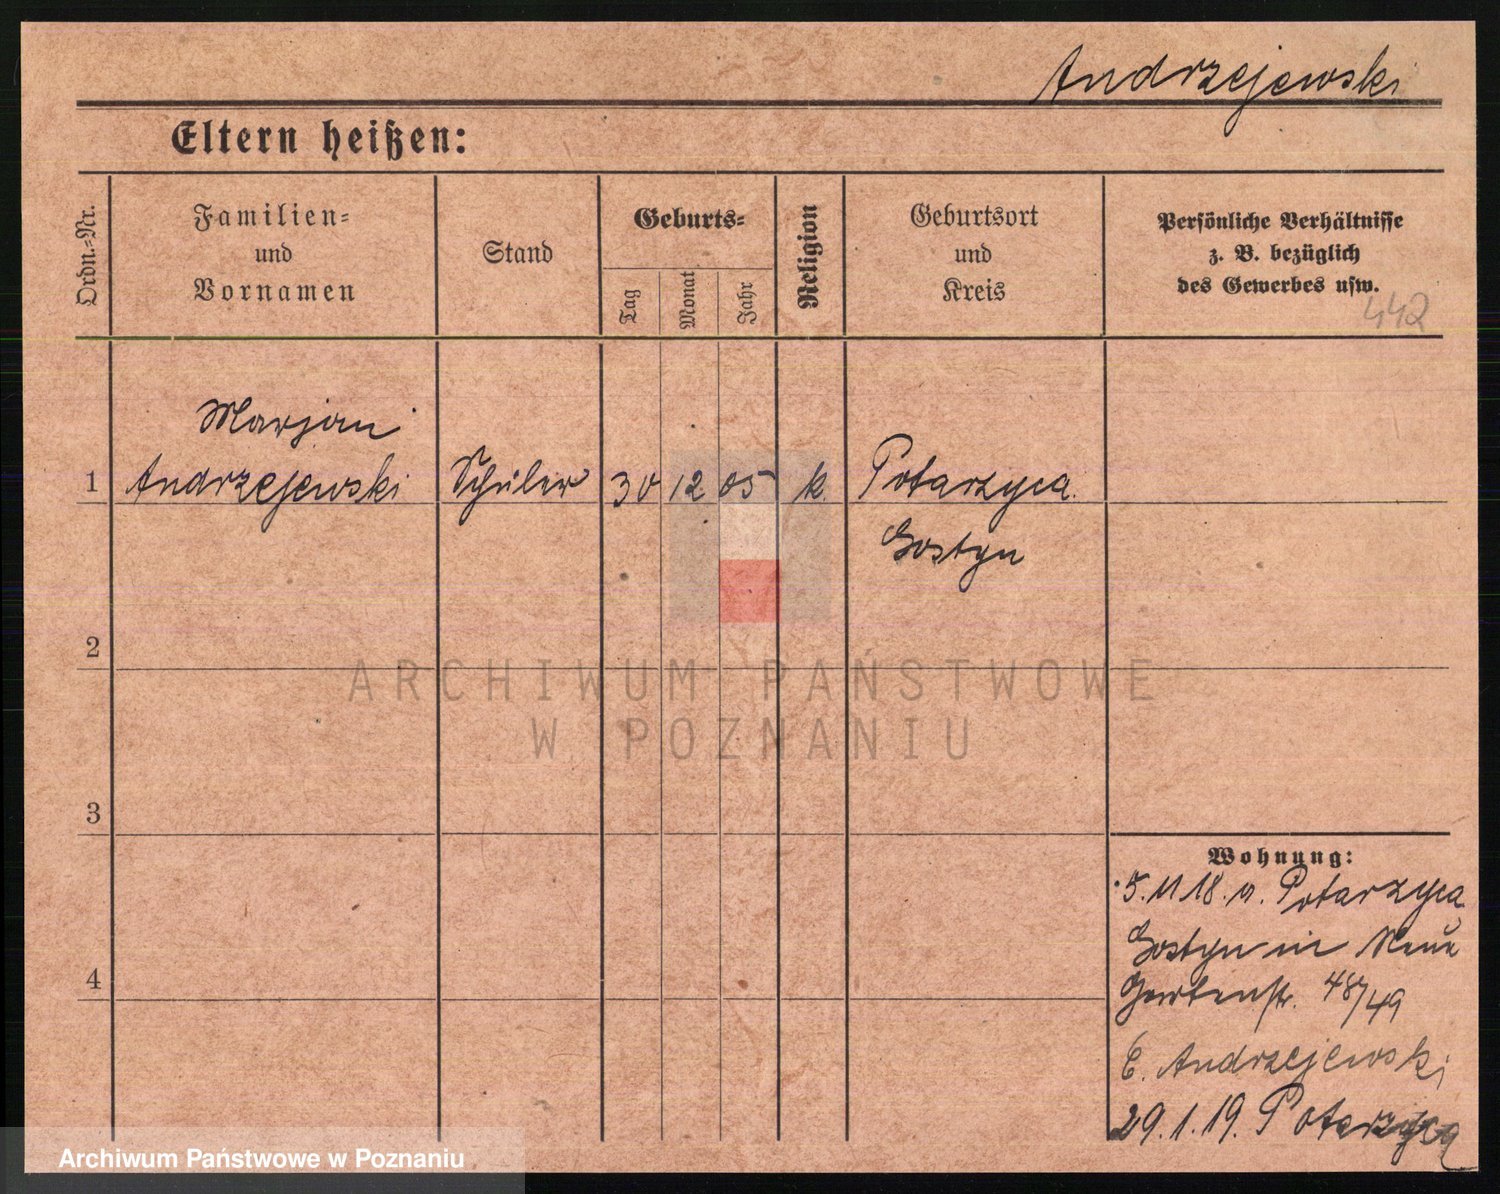 Andrzejewski
Eltern heißen:
Ordn.-Nr.
Familien-
und
Vornamen
Stand
Geburts-
Tag
Monat
Jahr
Religion
Geburtsort
und
Kreis
Persönliche Verhältnisse
z. B. bezüglich
des Gewerbes usw.
442
Marjan
1 Andrzejewski Schüler 30 12 05 k. Potarzyca
Gostyn
2
ARCHIWUM PAŃSTWOWE
W POZNANIU
3
4
Wohnung:
5.11.18. a. Potarzyca
Gostyn in Neue
Gartenstr. 48/49
E. Andrzejewski
29.1.19. Potarzyca
Archiwum Państwowe w Poznaniu